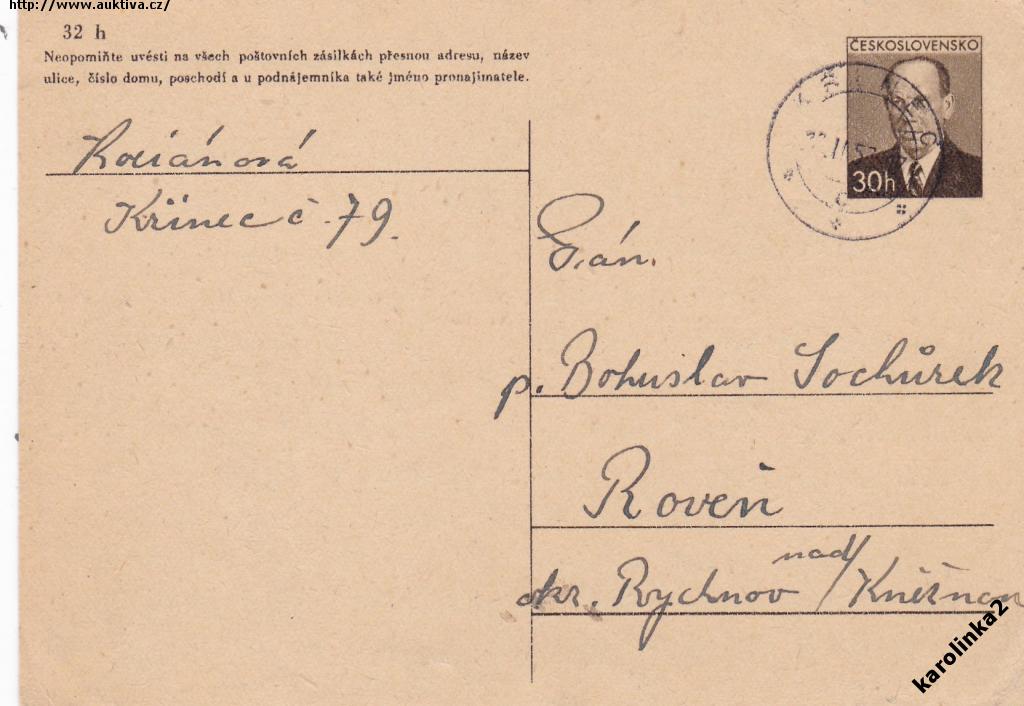 http://www.auktiva.cz/
32 h
Neopomiňte uvésti na všech poštovních zásilkách přesnou adresu, název
ulice, číslo domu, poschodí a u podnájemníka také jméno pronajimatele.
ČESKOSLOVENSKO
30h
KŘINEC
Kociánová
Křinec č. 79.
p. Bohuslav Sochůrek
Roveň
okr. Rychnov nad/Kněžnou
karolinka2